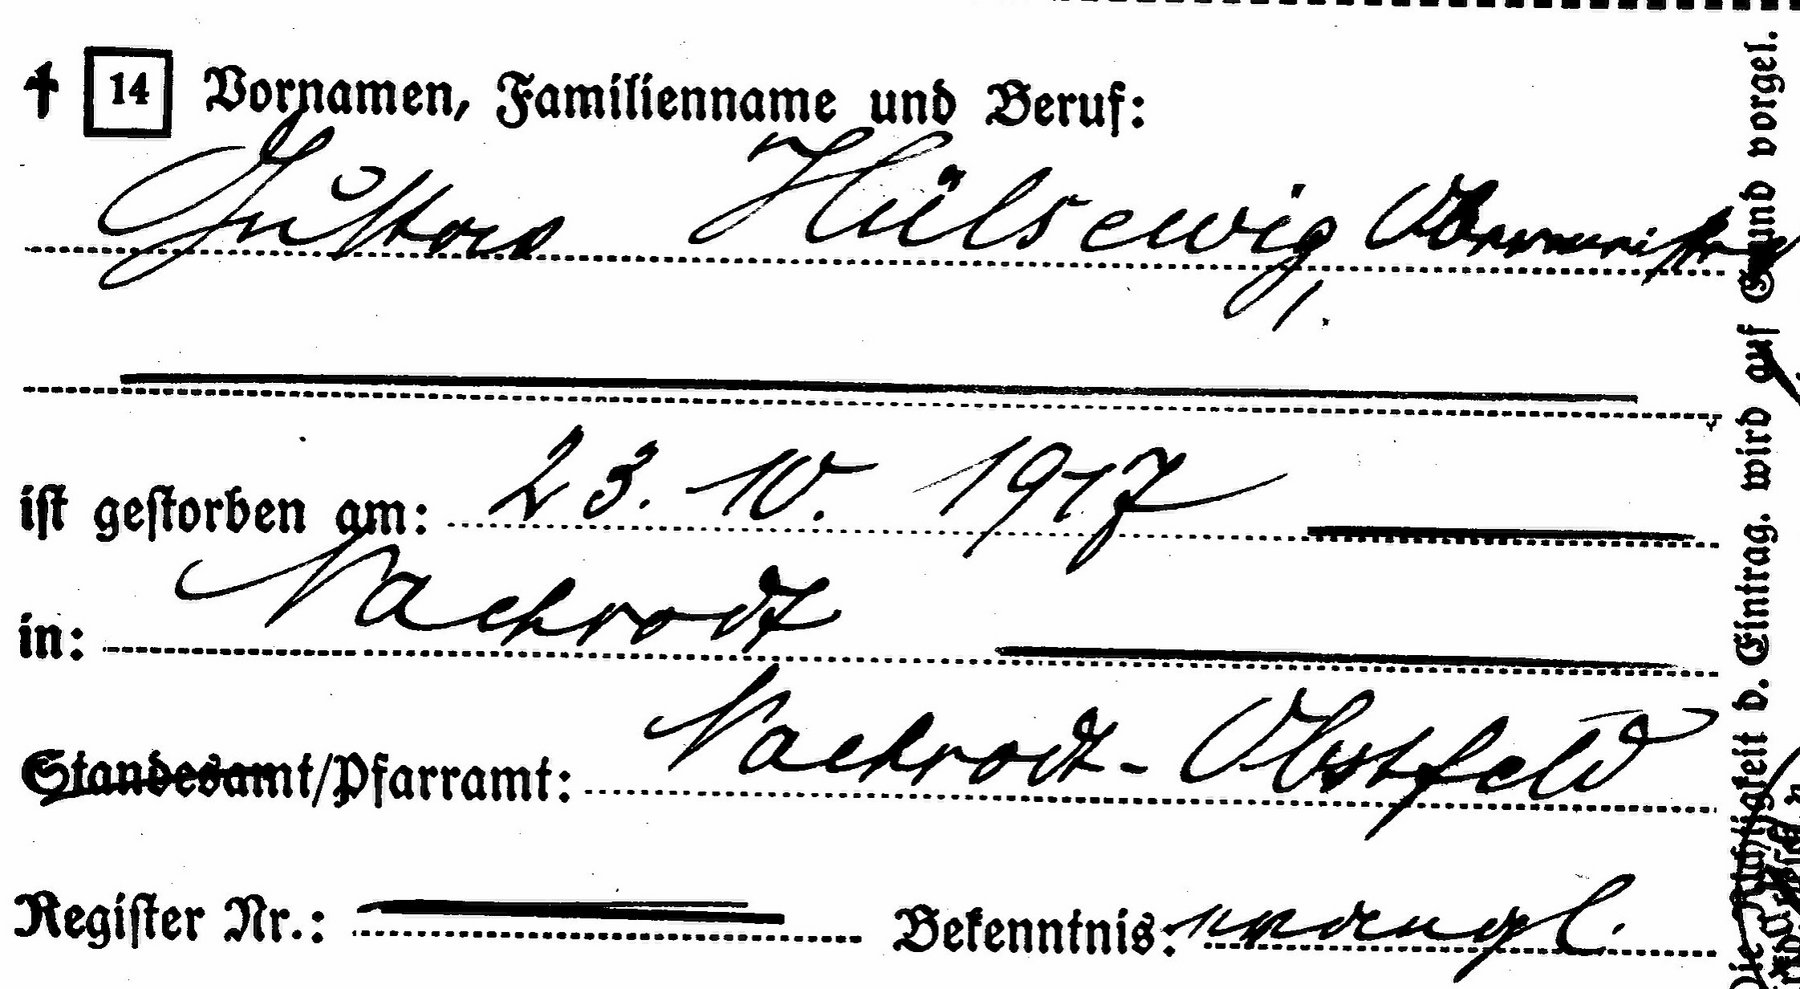 † 14 Vornamen, Familienname und Beruf:
Gustav Hülsewig,
ist gestorben am: 23. 10. 1917
in: Nachrodt
Standesamt/Pfarramt: Nachrodt-Obstfeld
Register Nr.: Bekenntnis: evangl.
Die Richtigkeit d. Eintrag. wird auf Grund vorgel.